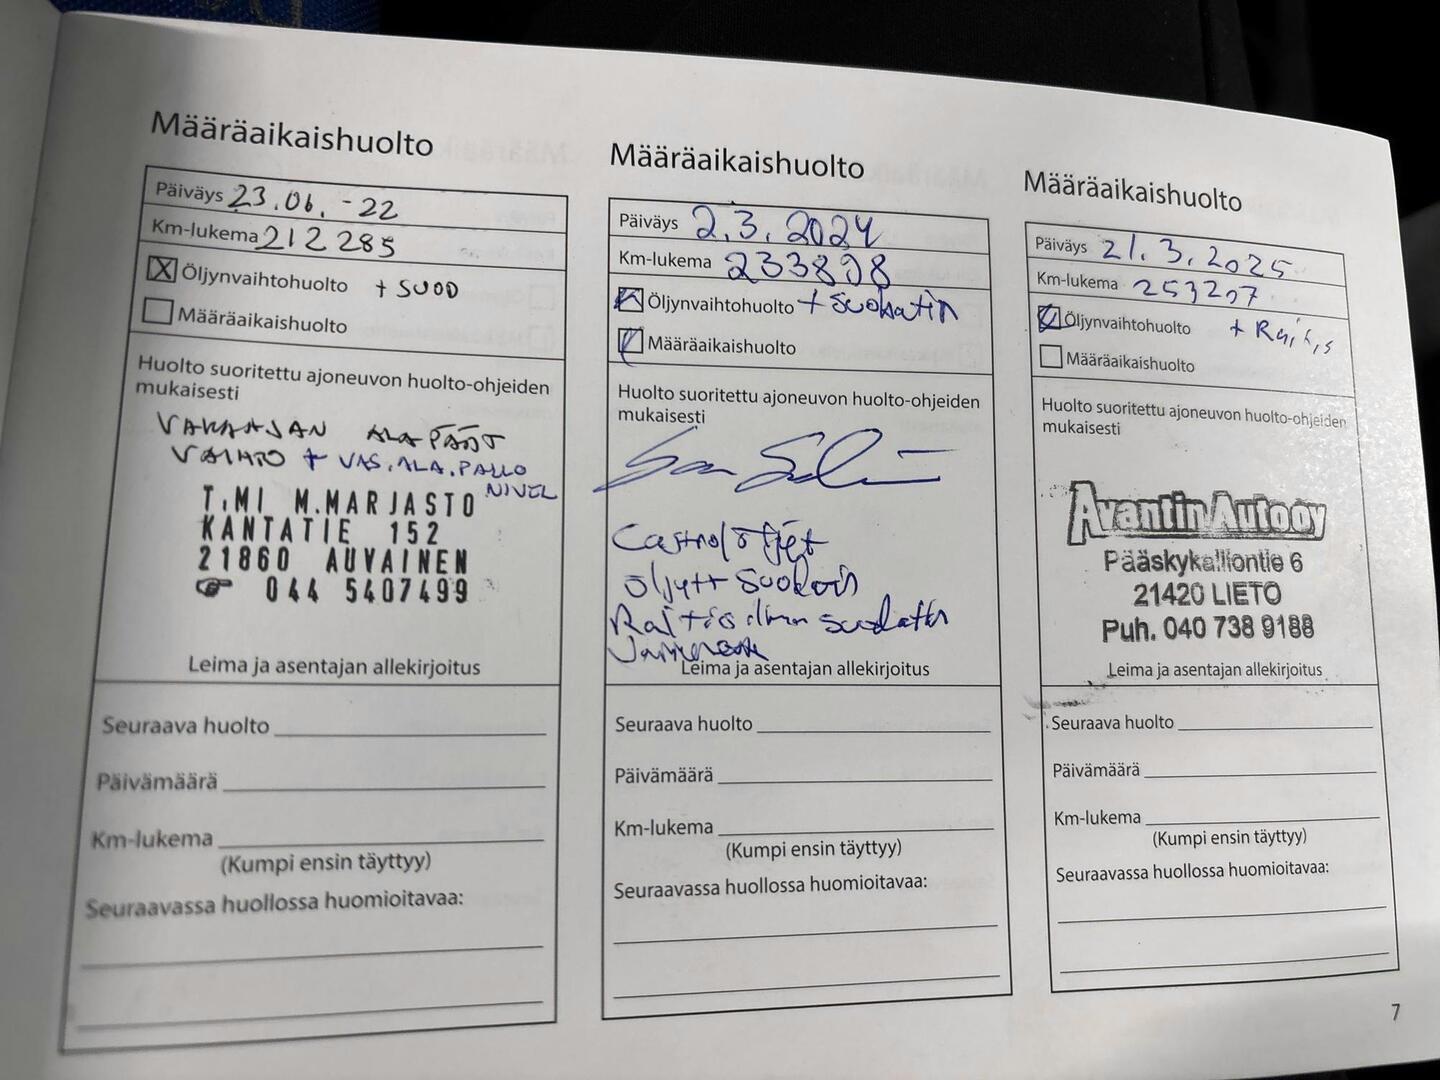 Määräaikaishuolto
Päiväys 23.06.-22
Km-lukema 212285
Öljynvaihtohuolto + SUOD
Määräaikaishuolto
Huolto suoritettu ajoneuvon huolto-ohjeiden
mukaisesti
ALAPÄÄT
VAIHTO + VAS.ALA.PALLO
NIVEL
T:MI M.MARJASTO
KANTATIE 152
21860 AUVAINEN
☞ 044 5407499
Leima ja asentajan allekirjoitus
Seuraava huolto
Päivämäärä
Km-lukema
(Kumpi ensin täyttyy)
Seuraavassa huollossa huomioitavaa:
Määräaikaishuolto
Päiväys 2.3.2024
Km-lukema 233898
Öljynvaihtohuolto + suodatin
Määräaikaishuolto
Huolto suoritettu ajoneuvon huolto-ohjeiden
mukaisesti
Castrol öljyt
Raitisilman suodatin
Leima ja asentajan allekirjoitus
Seuraava huolto
Päivämäärä
Km-lukema
(Kumpi ensin täyttyy)
Seuraavassa huollossa huomioitavaa:
Määräaikaishuolto
Päiväys 21.3.2025
Km-lukema 253207
Öljynvaihtohuolto + Raitis
Määräaikaishuolto
Huolto suoritettu ajoneuvon huolto-ohjeiden
mukaisesti
Avantin Auto oy
Pääskykalliontie 6
21420 LIETO
Puh. 040 738 9188
Leima ja asentajan allekirjoitus
Seuraava huolto
Päivämäärä
Km-lukema
(Kumpi ensin täyttyy)
Seuraavassa huollossa huomioitavaa:
7